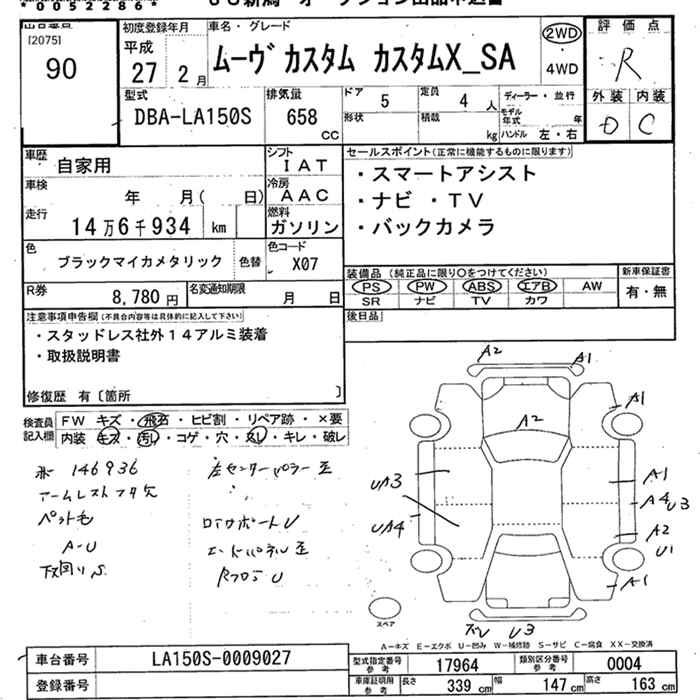 *0052286*
出品番号
[2075]
90
初度登録年月
平成
27 2月
車名・グレード
ムーヴ カスタム カスタムX_SA
2WD
・4WD
評価点
R
外装 内装
D C
型式
DBA-LA150S
排気量
658 CC
ドア 5
定員 4 人
形状
積載 kg
ディーラー・並行
モデル年式 年
ハンドル 左・右
車歴
自家用
シフト
IAT
車検
年 月( 日)
冷房
AAC
走行
14万6千934 km
燃料
ガソリン
セールスポイント(正常に機能するものに限ります)
・スマートアシスト
・ナビ ・TV
・バックカメラ
色
ブラックマイカメタリック
色替
色コード
X07
R券
8,780 円
名変通知期限
月 日
装備品(純正品に限り○をつけてください)
PS PW ABS エアB AW
SR ナビ TV カワ
新車保証書
有・無
注意事項申告欄(不具合内容等は具体的に記入して下さい)
・スタッドレス社外14アルミ装着
・取扱説明書
後日品
修復歴 有〔箇所 〕
検査員
記入欄
FW キズ・飛石・ヒビ割・リペア跡・×要
内装 キズ・汚れ・コゲ・穴・スレ・キレ・破レ
146936
アームレストフタ欠
ペット毛
A-U
下回りS
左センターピラー歪
ロッカーパネル歪
Rフロア U
A2
A1
A1
A2
UA3
A1
A4 U3
UA4
A2
U1
A1
U3
スペア
A-キズ E-エクボ U-凹み W-補修跡 S-サビ C-腐食 XX-交換済
車台番号
LA150S-0009027
登録番号
型式指定番号
参考
17964
類別区分番号
参考
0004
車庫証明用
参考
長さ 339 cm
幅 147 cm
高さ 163 cm